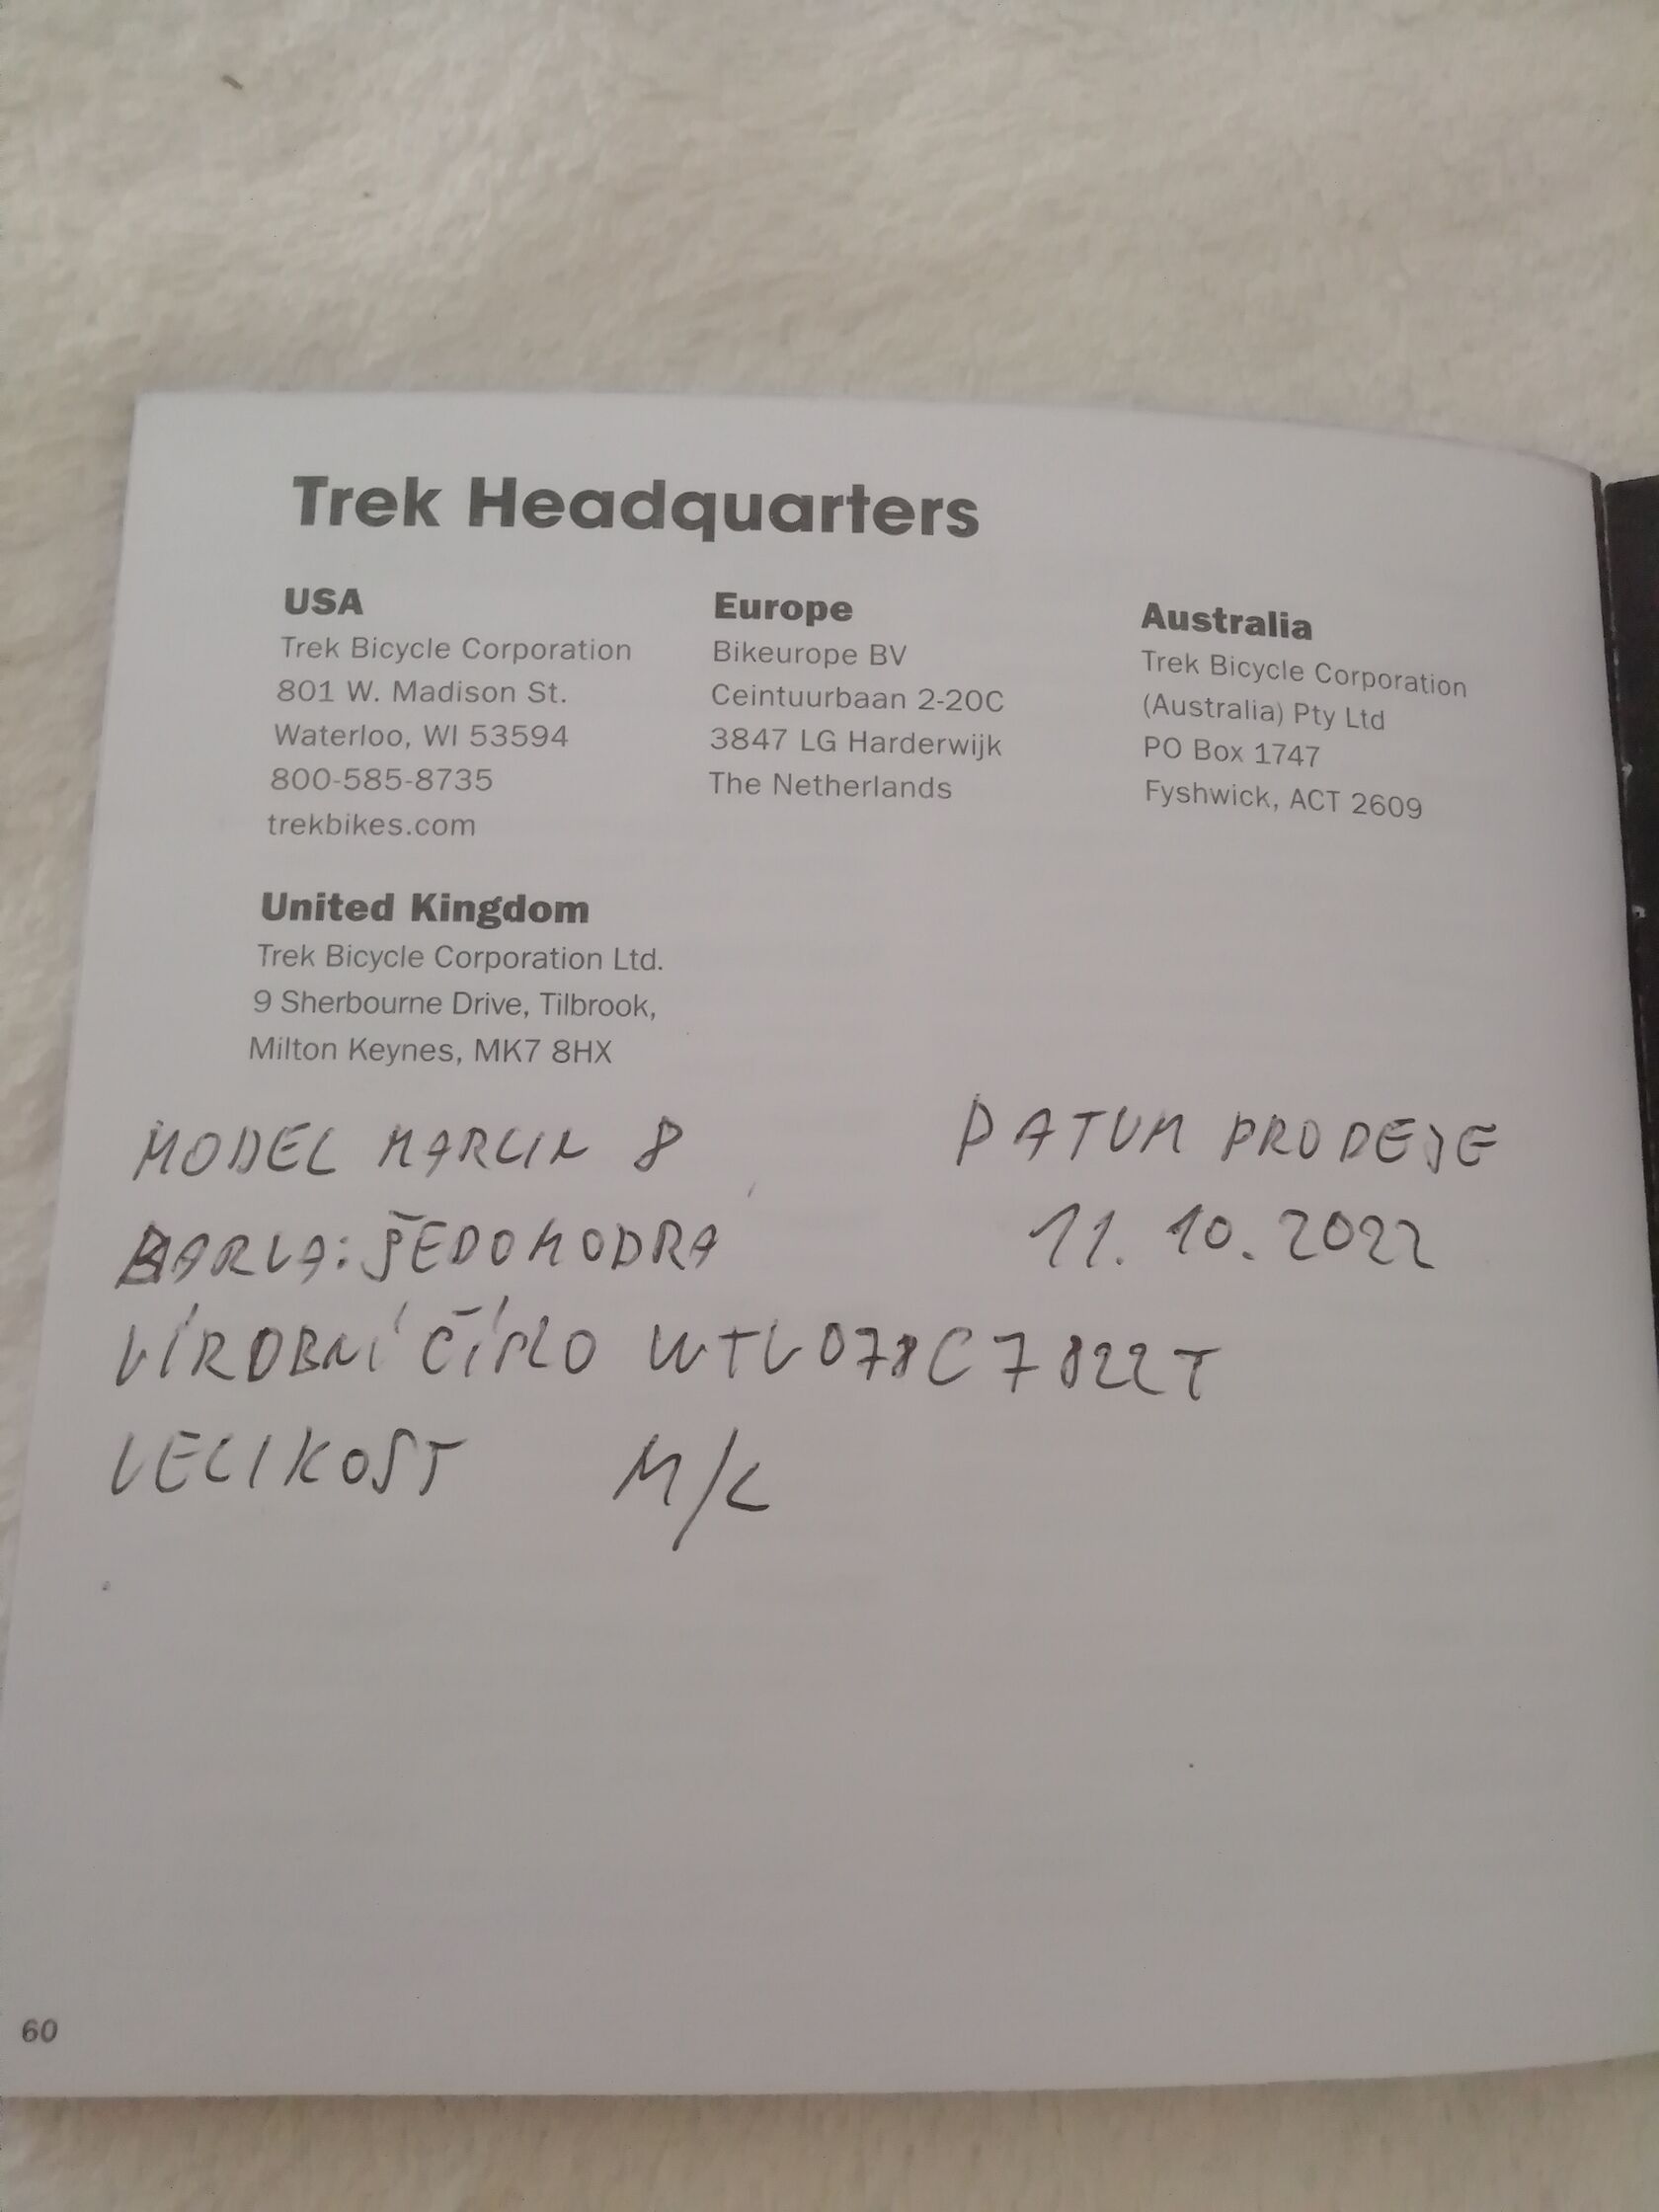 Trek Headquarters
USA
Trek Bicycle Corporation
801 W. Madison St.
Waterloo, WI 53594
800-585-8735
trekbikes.com
Europe
Bikeurope BV
Ceintuurbaan 2-20C
3847 LG Harderwijk
The Netherlands
Australia
Trek Bicycle Corporation
(Australia) Pty Ltd
PO Box 1747
Fyshwick, ACT 2609
United Kingdom
Trek Bicycle Corporation Ltd.
9 Sherbourne Drive, Tilbrook,
Milton Keynes, MK7 8HX
MODEL MARLIN 8
BARVA: ŠEDOMODRA
VÍROBNÍ ČÍSLO WTU078C7822T
VELIKOST M/L
DATUM PRODEJE
11. 10. 2022
60